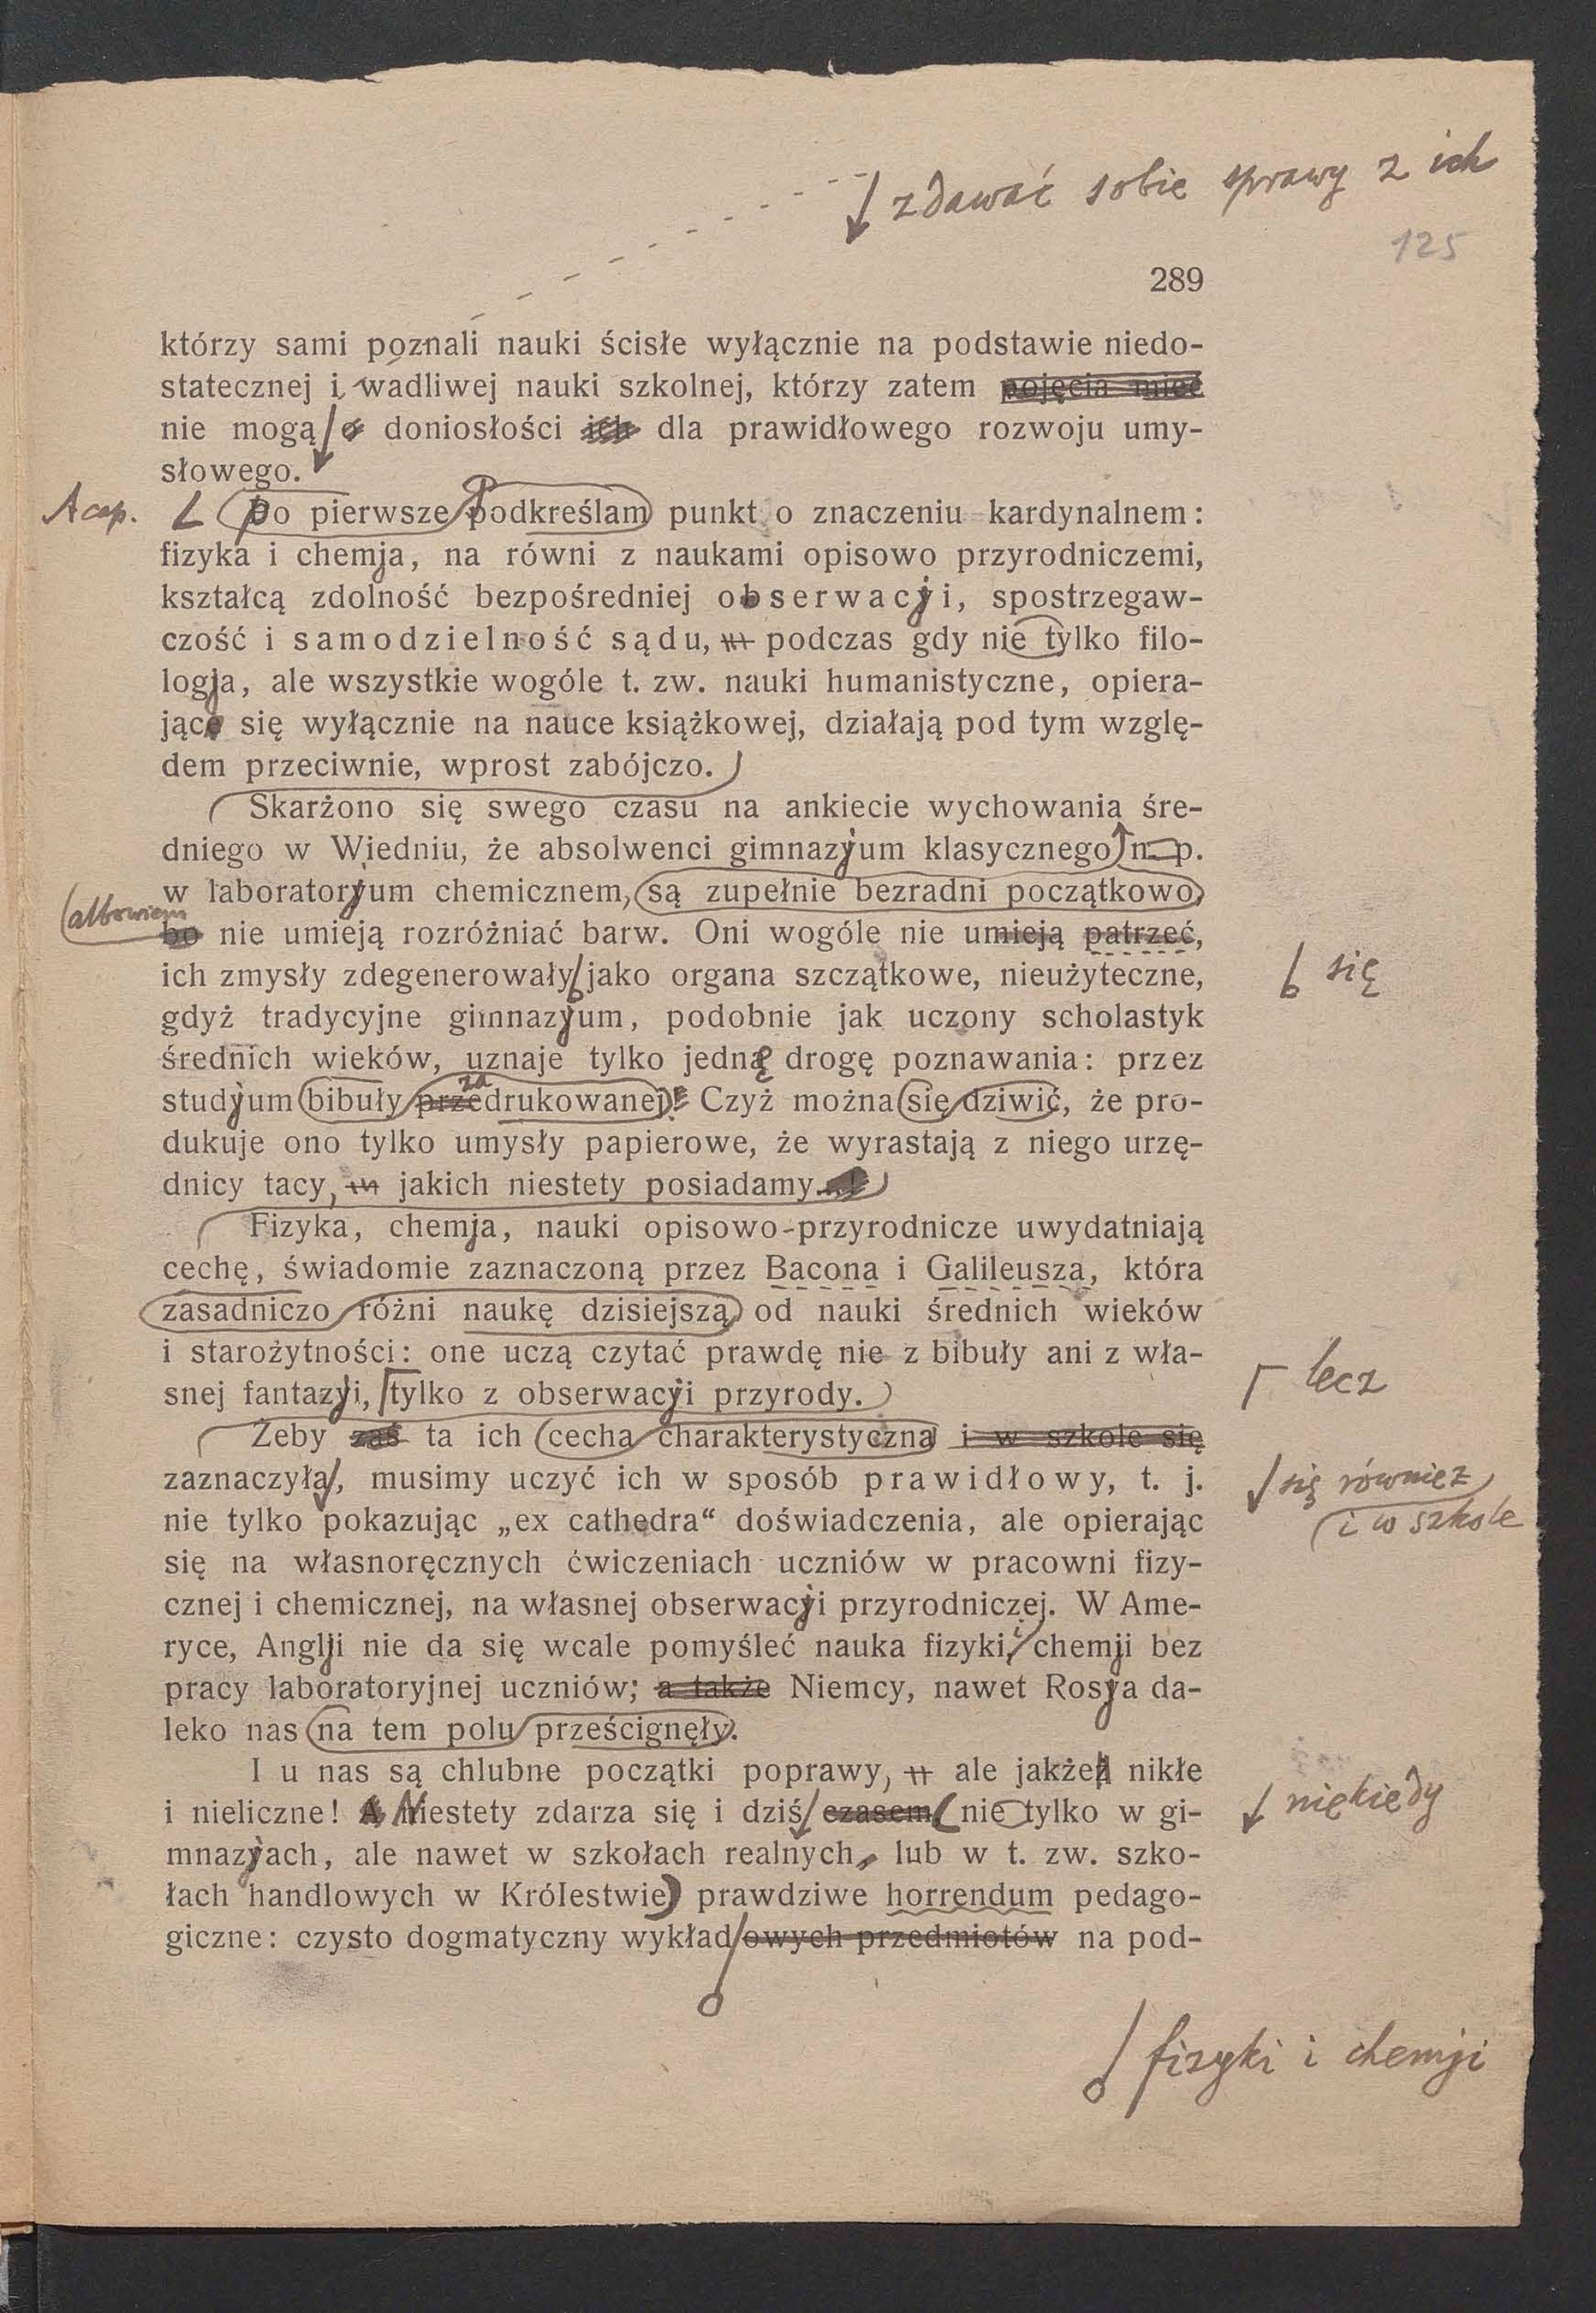 zdawać sobie sprawy z ich
125
289
którzy sami poznali nauki ścisłe wyłącznie na podstawie niedo-
statecznej i wadliwej nauki szkolnej, którzy zatem pojęcia mieć
nie mogą o doniosłości ich dla prawidłowego rozwoju umy-
słowego.
A cap. Po pierwsze podkreślam punkt o znaczeniu kardynalnem:
fizyka i chemja, na równi z naukami opisowo przyrodniczemi,
kształcą zdolność bezpośredniej obserwacji, spostrzegaw-
czość i samodzielność sądu, podczas gdy nie tylko filo-
logja, ale wszystkie wogóle t. zw. nauki humanistyczne, opiera-
jące się wyłącznie na nauce książkowej, działają pod tym wzglę-
dem przeciwnie, wprost zabójczo.
Skarżono się swego czasu na ankiecie wychowania śre-
dniego w Wiedniu, że absolwenci gimnazjum klasycznego n. p.
w laboratorjum chemicznem, są zupełnie bezradni początkowo,
albowiem
bo nie umieją rozróżniać barw. Oni wogóle nie umieją patrzeć,
ich zmysły zdegenerowały jako organa szczątkowe, nieużyteczne, się
gdyż tradycyjne gimnazjum, podobnie jak uczony scholastyk
średnich wieków, uznaje tylko jedną drogę poznawania: przez
za
studjum bibuły przedrukowanej! Czyż można się dziwić, że pro-
dukuje ono tylko umysły papierowe, że wyrastają z niego urzę-
dnicy tacy, jakich niestety posiadamy.
Fizyka, chemja, nauki opisowo-przyrodnicze uwydatniają
cechę, świadomie zaznaczoną przez Bacona i Galileusza, która
zasadniczo różni naukę dzisiejszą od nauki średnich wieków
i starożytności: one uczą czytać prawdę nie z bibuły ani z wła-
snej fantazji, tylko z obserwacji przyrody. lecz
Żeby zaś ta ich cecha charakterystyczna i w szkole się
zaznaczyła, musimy uczyć ich w sposób prawidłowy, t. j. się również
nie tylko pokazując „ex cathedra“ doświadczenia, ale opierając i w szkole
się na własnoręcznych ćwiczeniach uczniów w pracowni fizy-
cznej i chemicznej, na własnej obserwacji przyrodniczej. W Ame-
ryce, Anglji nie da się wcale pomyśleć nauka fizyki i chemji bez
pracy laboratoryjnej uczniów; a także Niemcy, nawet Rosja da-
leko nas na tem polu prześcignęły.
I u nas są chlubne początki poprawy, ale jakżeż nikłe
i nieliczne! A Niestety zdarza się i dziś czasem nie tylko w gi- niekiedy
mnazjach, ale nawet w szkołach realnych, lub w t. zw. szko-
łach handlowych w Królestwie) prawdziwe horrendum pedago-
giczne: czysto dogmatyczny wykład owych przedmiotów na pod-
fizyki i chemji